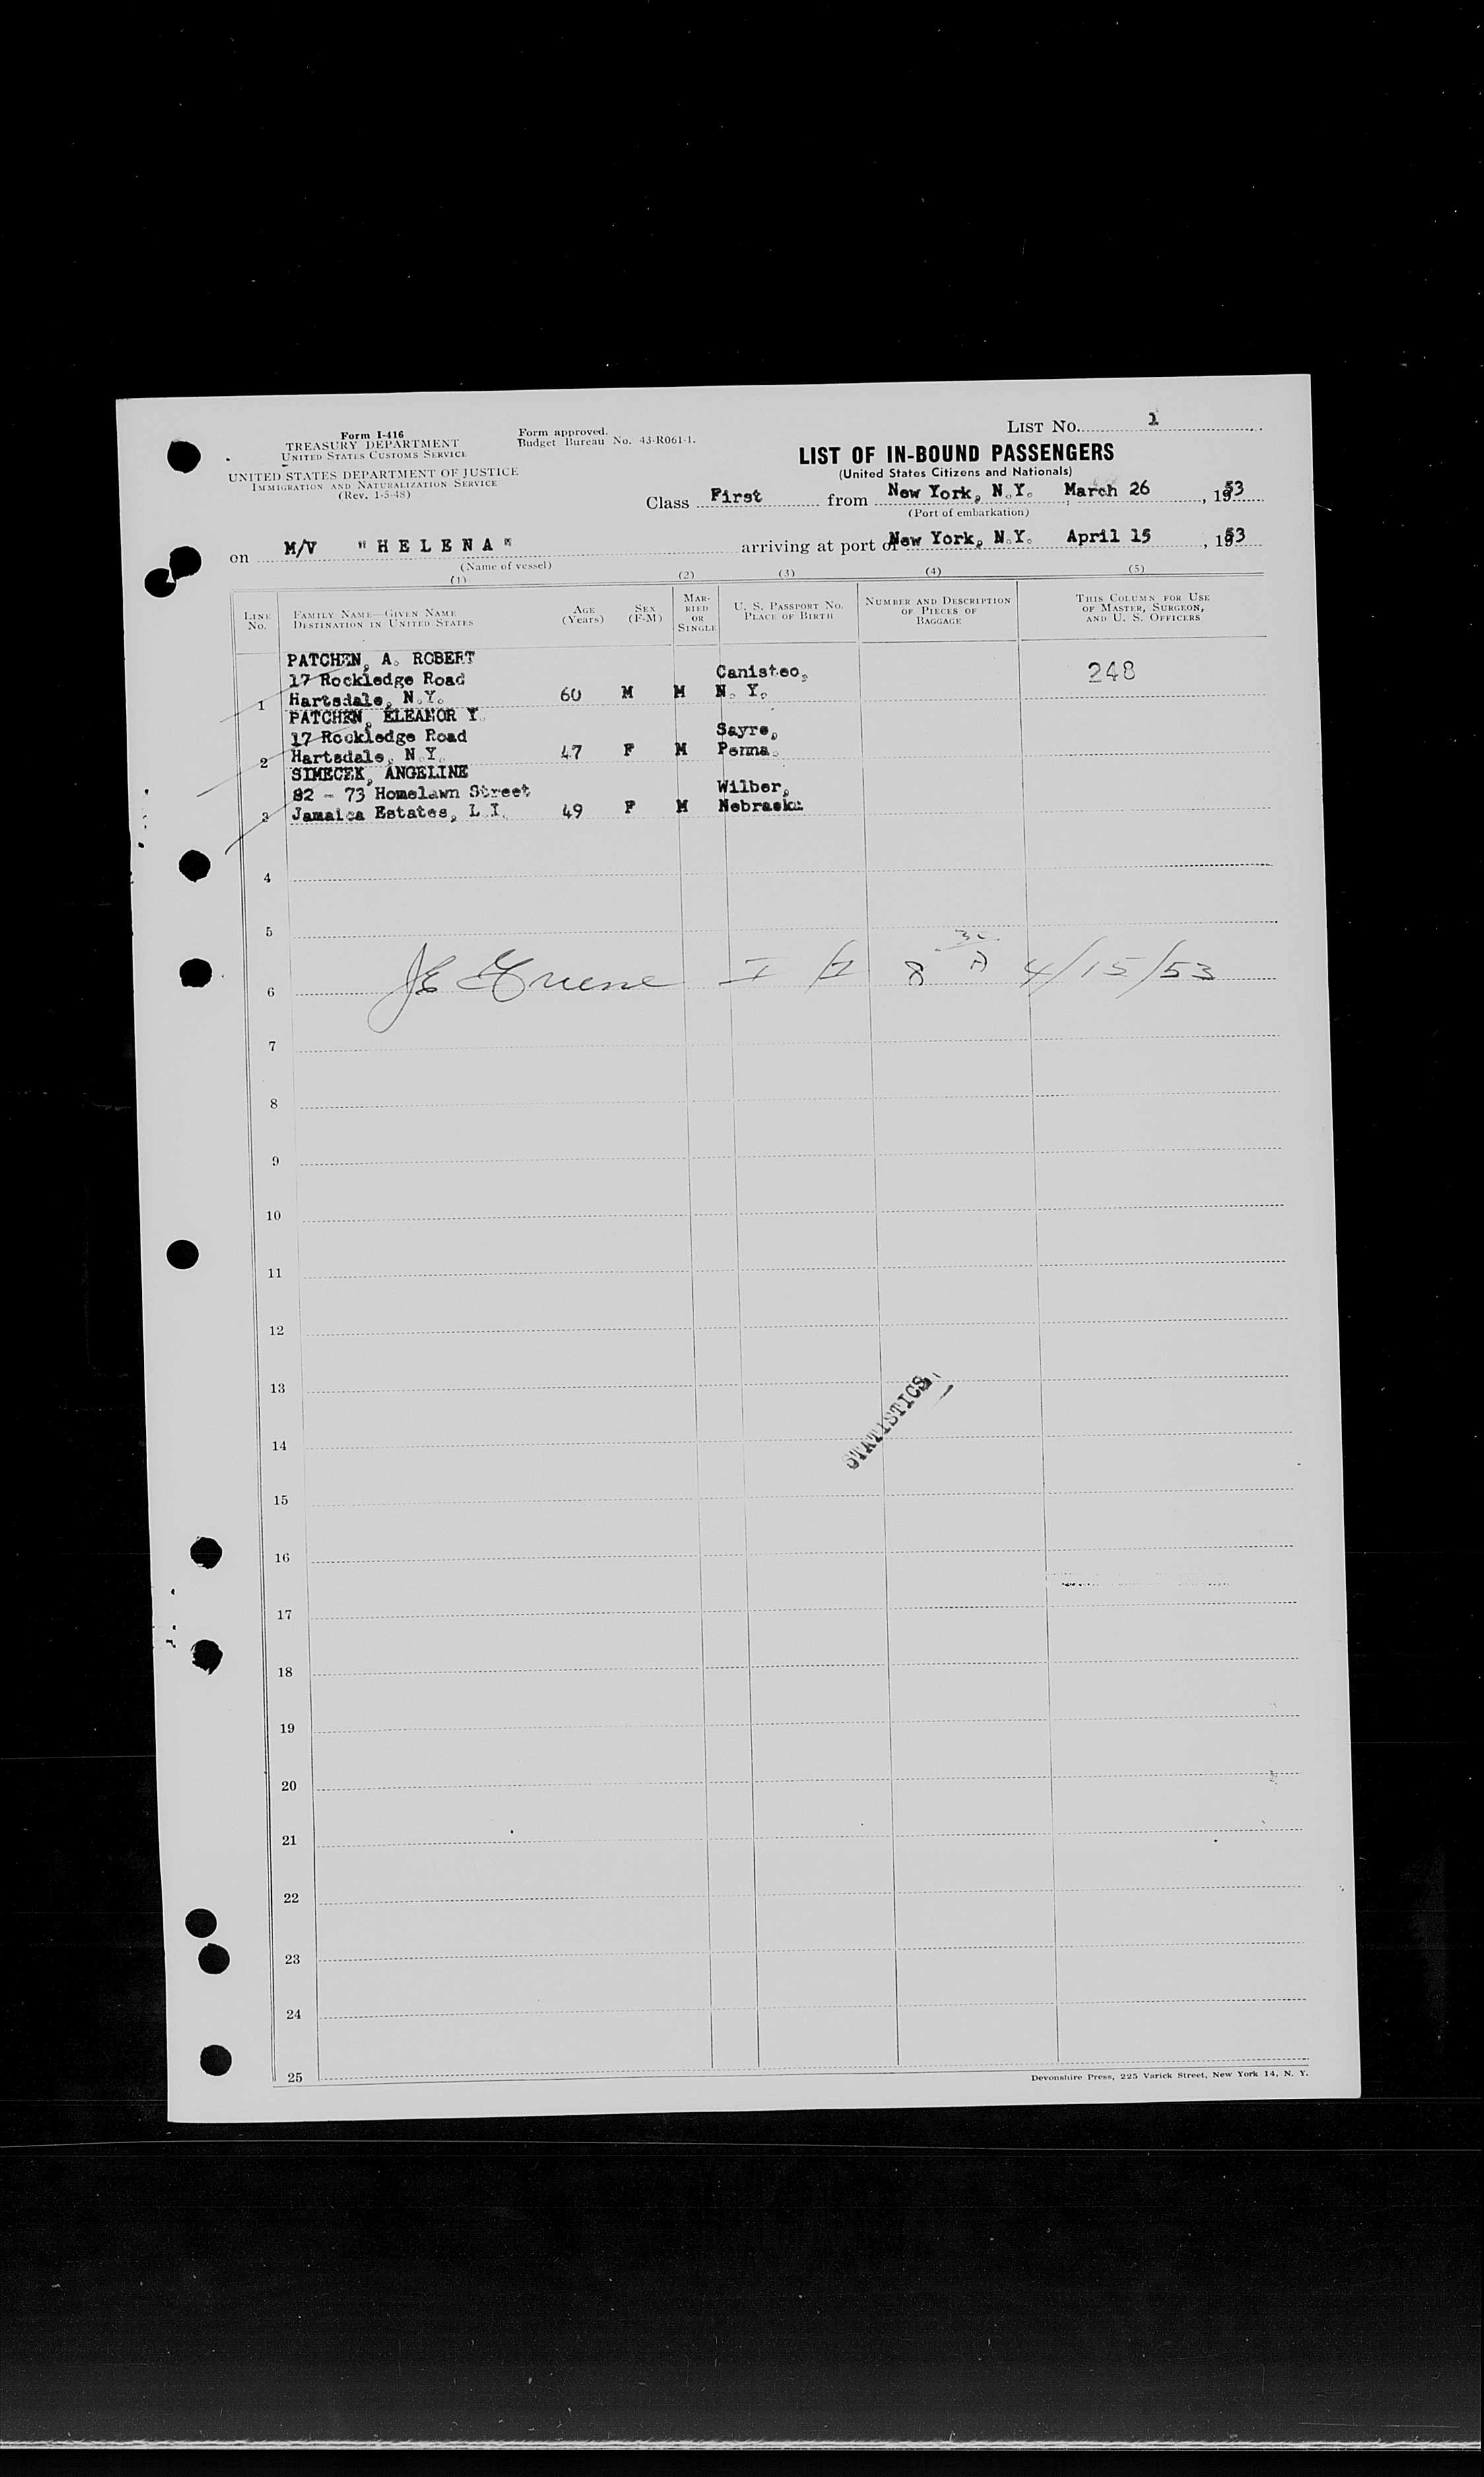 Form I-416
TREASURY DEPARTMENT
UNITED STATES CUSTOMS SERVICE
UNITED STATES DEPARTMENT OF JUSTICE
IMMIGRATION AND NATURALIZATION SERVICE
(Rev. 1-5-48)
Form approved.
Budget Bureau No. 43-R061-1.
LIST NO. 1
LIST OF IN-BOUND PASSENGERS
(United States Citizens and Nationals)
Class First from New York, N.Y. March 26, 1953
(Port of embarkation)
on M/V "HELENA" arriving at port of New York, N.Y. April 15, 1953
(Name of vessel)
(1) (2) (3) (4) (5)
LINE NO.
FAMILY NAME—GIVEN NAME
DESTINATION IN UNITED STATES
AGE (Years)
SEX (F-M)
MARRIED OR SINGLE
U. S. PASSPORT NO.
PLACE OF BIRTH
NUMBER AND DESCRIPTION OF PIECES OF BAGGAGE
THIS COLUMN FOR USE OF MASTER, SURGEON, AND U. S. OFFICERS
PATCHEN, A. ROBERT
17 Rockledge Road Canisteo, 248
1 Hartsdale, N.Y. 60 M M N. Y.
PATCHEN, ELEANOR Y.
17 Rockledge Road Sayre,
2 Hartsdale, N.Y. 47 F M Penna.
SIMECEK, ANGELINE
82 - 73 Homelawn Street Wilber,
3 Jamaica Estates, L.I. 49 F M Nebraska
4
5
6 4/15/53
7
8
9
10
11
12
13
STATISTICS
14
15
16
17
18
19
20
21
22
23
24
25
Devonshire Press, 225 Varick Street, New York 14, N. Y.